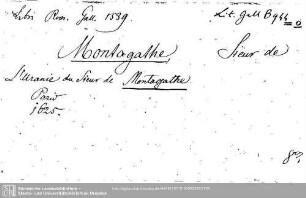 Libri Rom. Gall. 1539.
Lit. Gall B 944
Montagathe, Sieur de
L'Uranie du Sieur de Montagathe.
Paris
1625.
8º.
Sächsische Landesbibliothek -
Staats- und Universitätsbibliothek Dresden